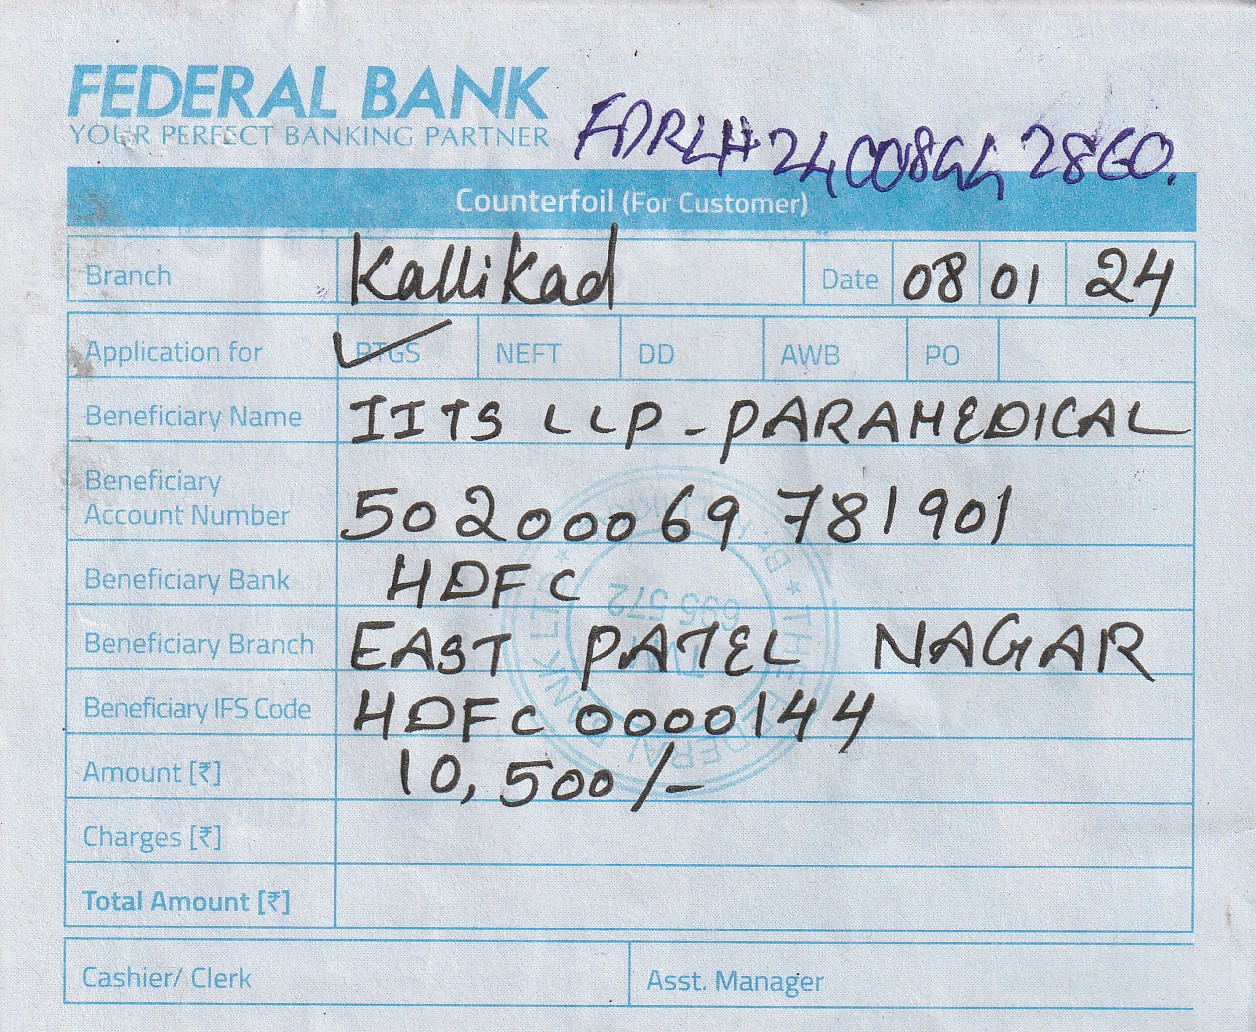 FEDERAL BANK
YOUR PERFECT BANKING PARTNER
FDRLH24008442860.
Counterfoil (For Customer)
Branch Kallikad Date 08 01 24
Application for RTGS NEFT DD AWB PO
Beneficiary Name IITS LLP - PARAMEDICAL
Beneficiary Account Number 50200069781901
Beneficiary Bank HDFC
Beneficiary Branch EAST PATEL NAGAR
Beneficiary IFS Code HDFC0000144
Amount [₹] 10,500/-
Charges [₹]
Total Amount [₹]
Cashier/ Clerk Asst. Manager
THE FEDERAL BANK LTD
695 572